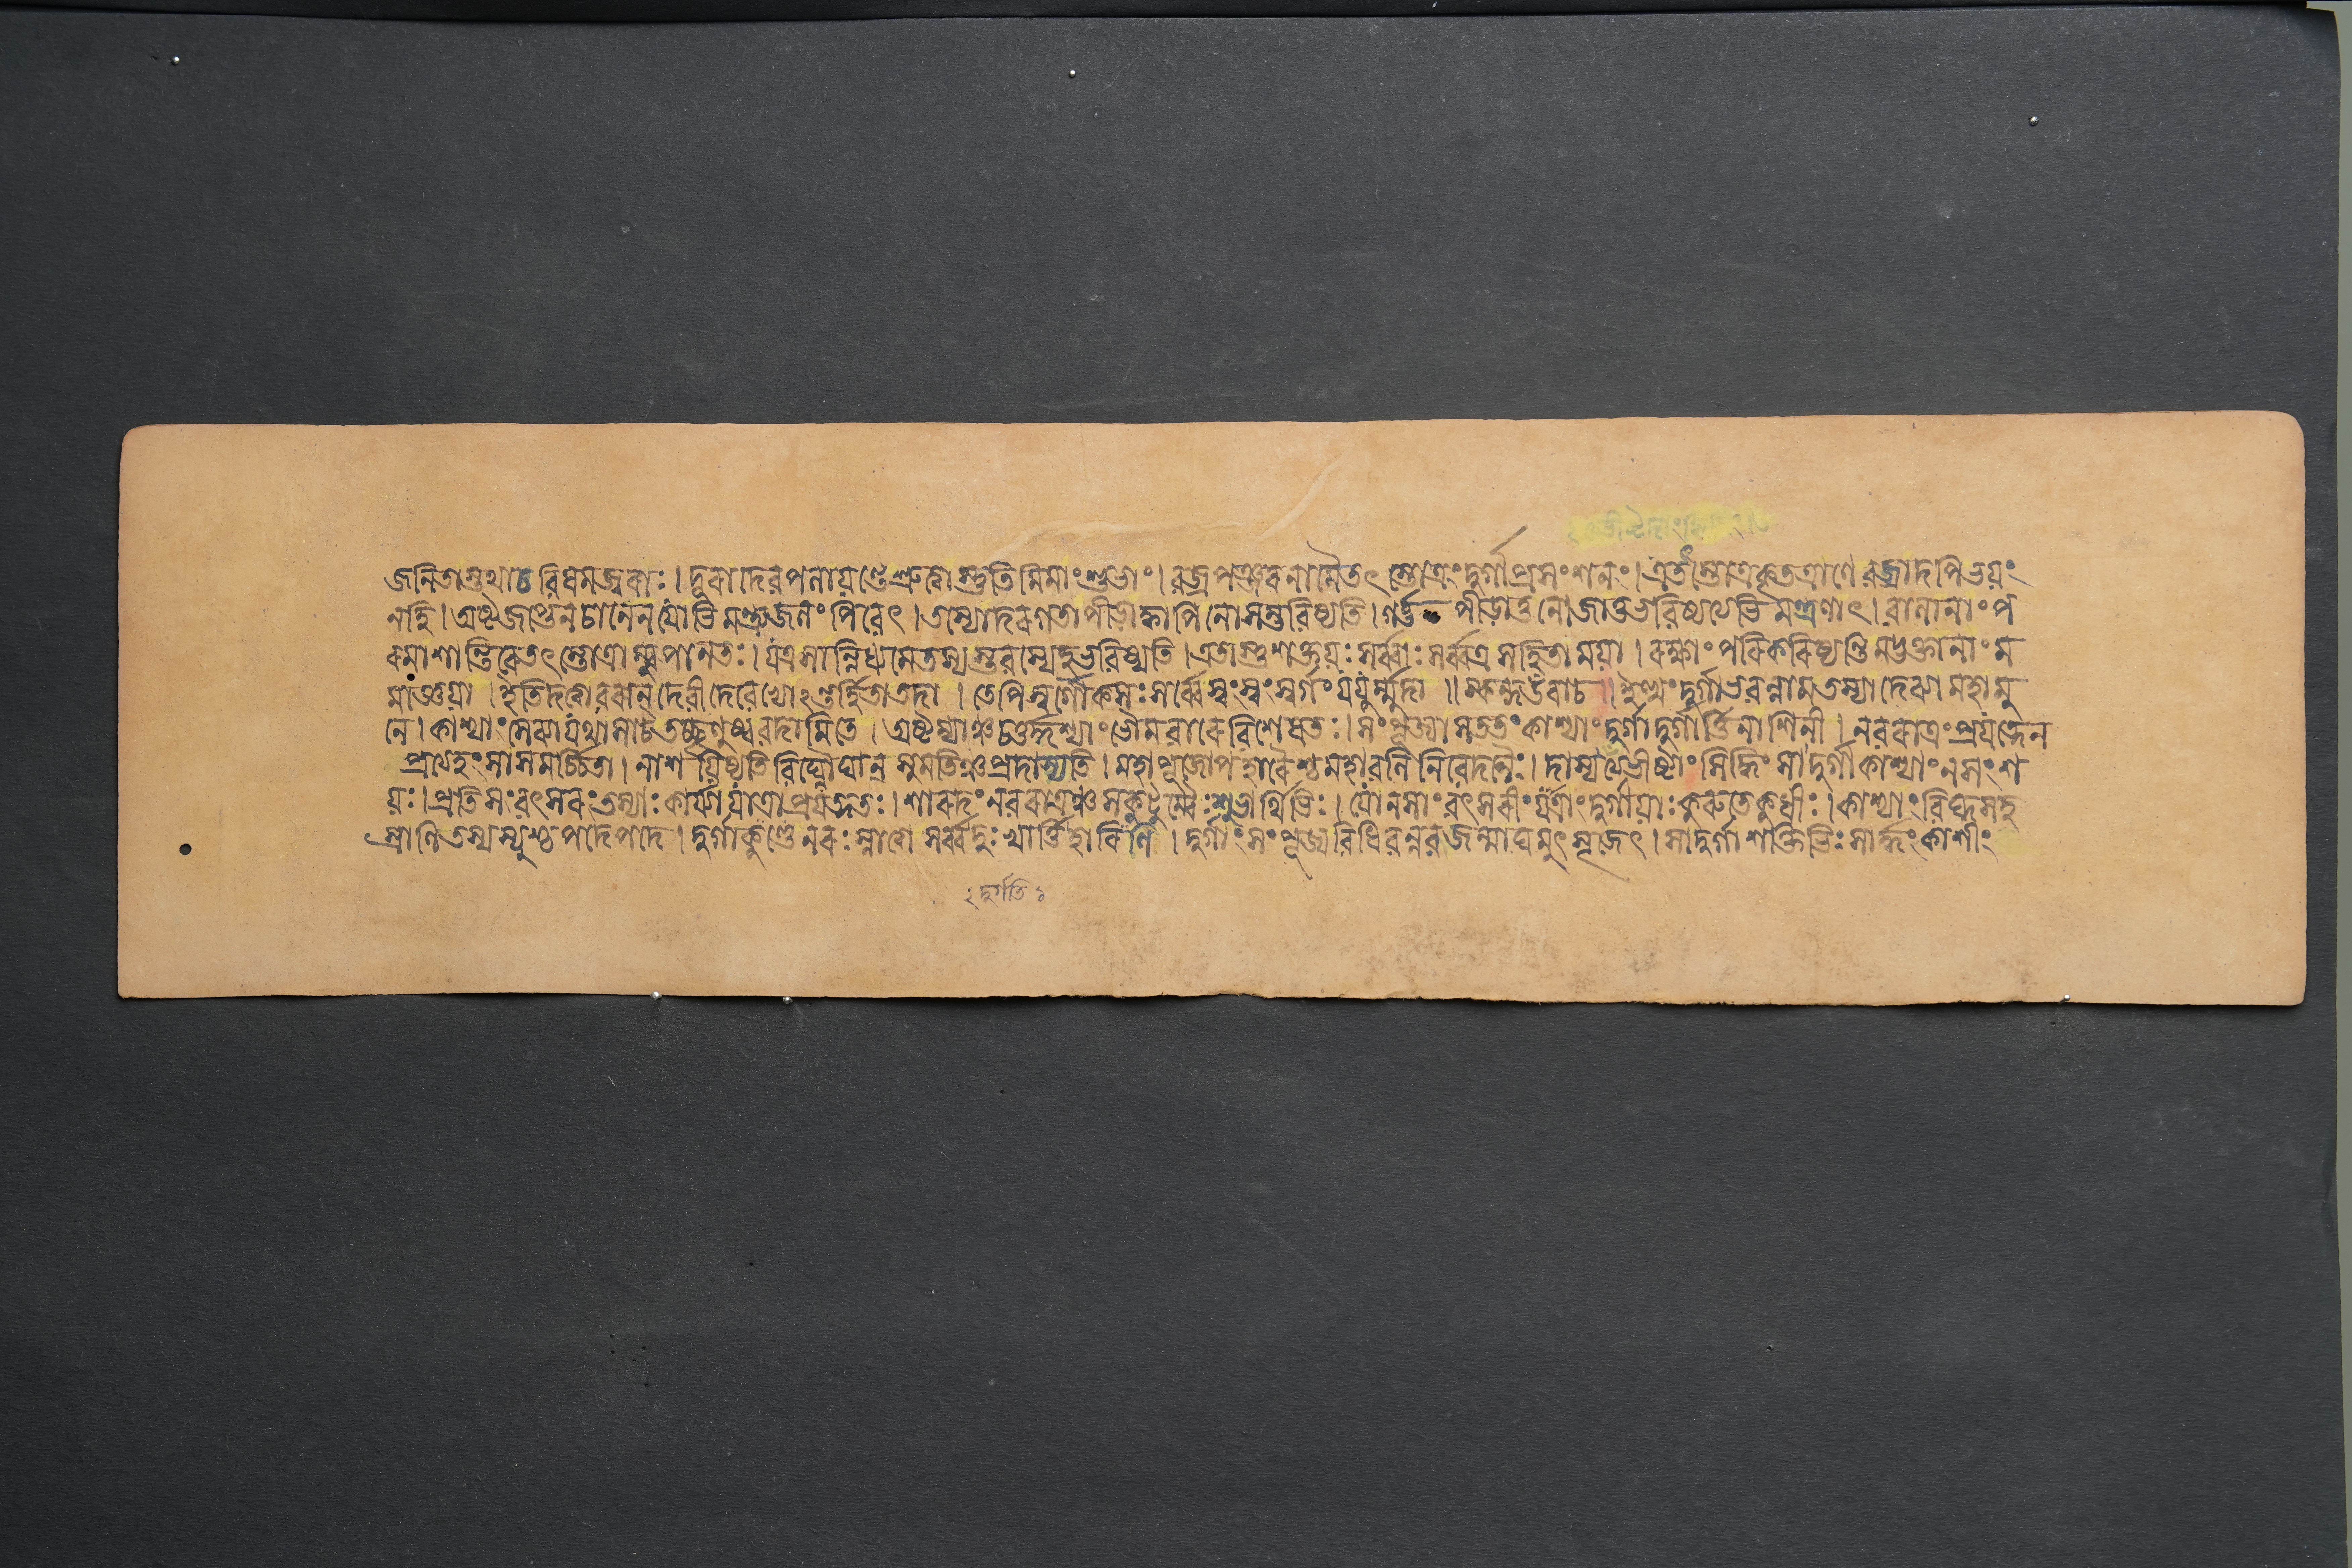 জনিতাস্তথাচবিষমজ্বরাঃ।দূরাদেবপলায়ন্তেশ্রুত্বাস্তুতিমিমাংশুভাং।বজ্রপঞ্জরনামৈতৎস্তোত্রংদুর্গাপ্রসংশনং।এতৎস্তোত্রকৃতত্রাণেবজ্রাদপিভয়ং
নহি।অষ্টজপ্তেনচানেনযোভিমন্ত্র্যজলংপিবেৎ।তস্যোদরগতাপীড়াক্বাপিনোসম্ভবিষ্যতি।গর্ভপীড়াতুনোজাতুভবিষ্যত্যভিমন্ত্রণাৎ।বালানাংপ
রমাশান্তিরেতৎস্তোত্রাম্বুপানতঃ।যত্রসান্নিধ্যমেতস্যস্তবস্যেহভবিষ্যতি।এতাস্তুশক্তয়ঃসর্ব্বাঃসর্ব্বত্রসহিতাময়া।রক্ষাংপরিকরিষ্যন্তিমদ্ভক্তানাংম
মাজ্ঞয়া।ইতিদত্বাবরান্দেবীদেবেভ্যোঽন্তর্হিতাতদা।তেপিস্বর্গৌকসঃসর্ব্বেস্বংস্বংস্বর্গংযযুর্ম্মুদা॥স্কন্দউবাচ॥ইত্থংদুর্গাভবন্নামতস্যাদেব্যামহামু
নে।কাশ্যাংসেব্যাযথাসাচতচ্ছৃণুষ্ববদামিতে।অষ্টম্যাঞ্চচতুর্দ্দশ্যাংভৌমবারেবিশেষতঃ।সংপূজ্যাসততংকাশ্যাংদুর্গাদুর্গার্ত্তিনাশিনী।নবরাত্রংপ্রযত্নেন
প্রত্যহংসাসমর্চ্চিতা।নাশয়িষ্যতিবিঘ্নৌঘান্সুমতিঞ্চপ্রদাস্যতি।মহাপূজোপহারৈশ্চমহাবলিনিবেদনৈঃ।দাস্যত্যভীষ্টাংসিদ্ধিংসাদুর্গাকাশ্যাংনসংশ
য়ঃ।প্রতিসংবৎসরংতস্যাঃকার্য্যাযাত্রাপ্রযত্নতঃ।শারদংনবরাত্রঞ্চসকুটুম্বৈঃশুভার্থিভিঃ।যোনসাংবৎসরীংযাত্রাংদুর্গায়াঃকুরুতেকুধীঃ।কাশ্যাংবিঘ্নসহ
স্রাণিতস্যস্যুশ্চপদেপদে।দুর্গাকুণ্ডেনরঃস্নাত্বাসর্ব্বদুঃখার্ত্তিহারিণীং।দুর্গাংসংপূজ্যবিধিবন্নবজন্মাঘমুৎসৃজেৎ।সাদুর্গাশক্তিভিঃসার্দ্ধংকাশীং
২দুর্গতি